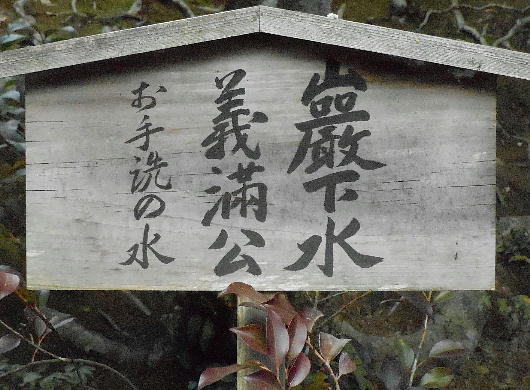 巖下水
義満公
お手洗の水